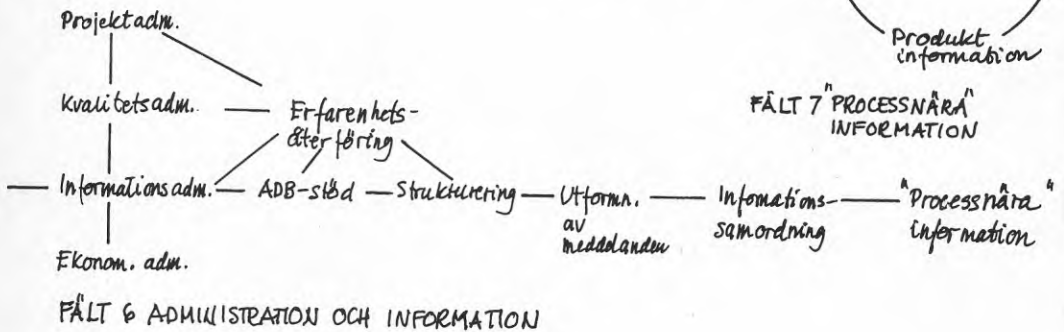 Projektadm.
Produkt
information
Kvalitetsadm.
Erfarenhets-
återföring
FÄLT 7 "PROCESSNÄRA"
INFORMATION
Informationsadm.
ADB-stöd
Strukturering
Utformn.
av
meddelanden
Infomations-
samordning
"Processnära"
information
Ekonom. adm.
FÄLT 6 ADMINISTRATION OCH INFORMATION